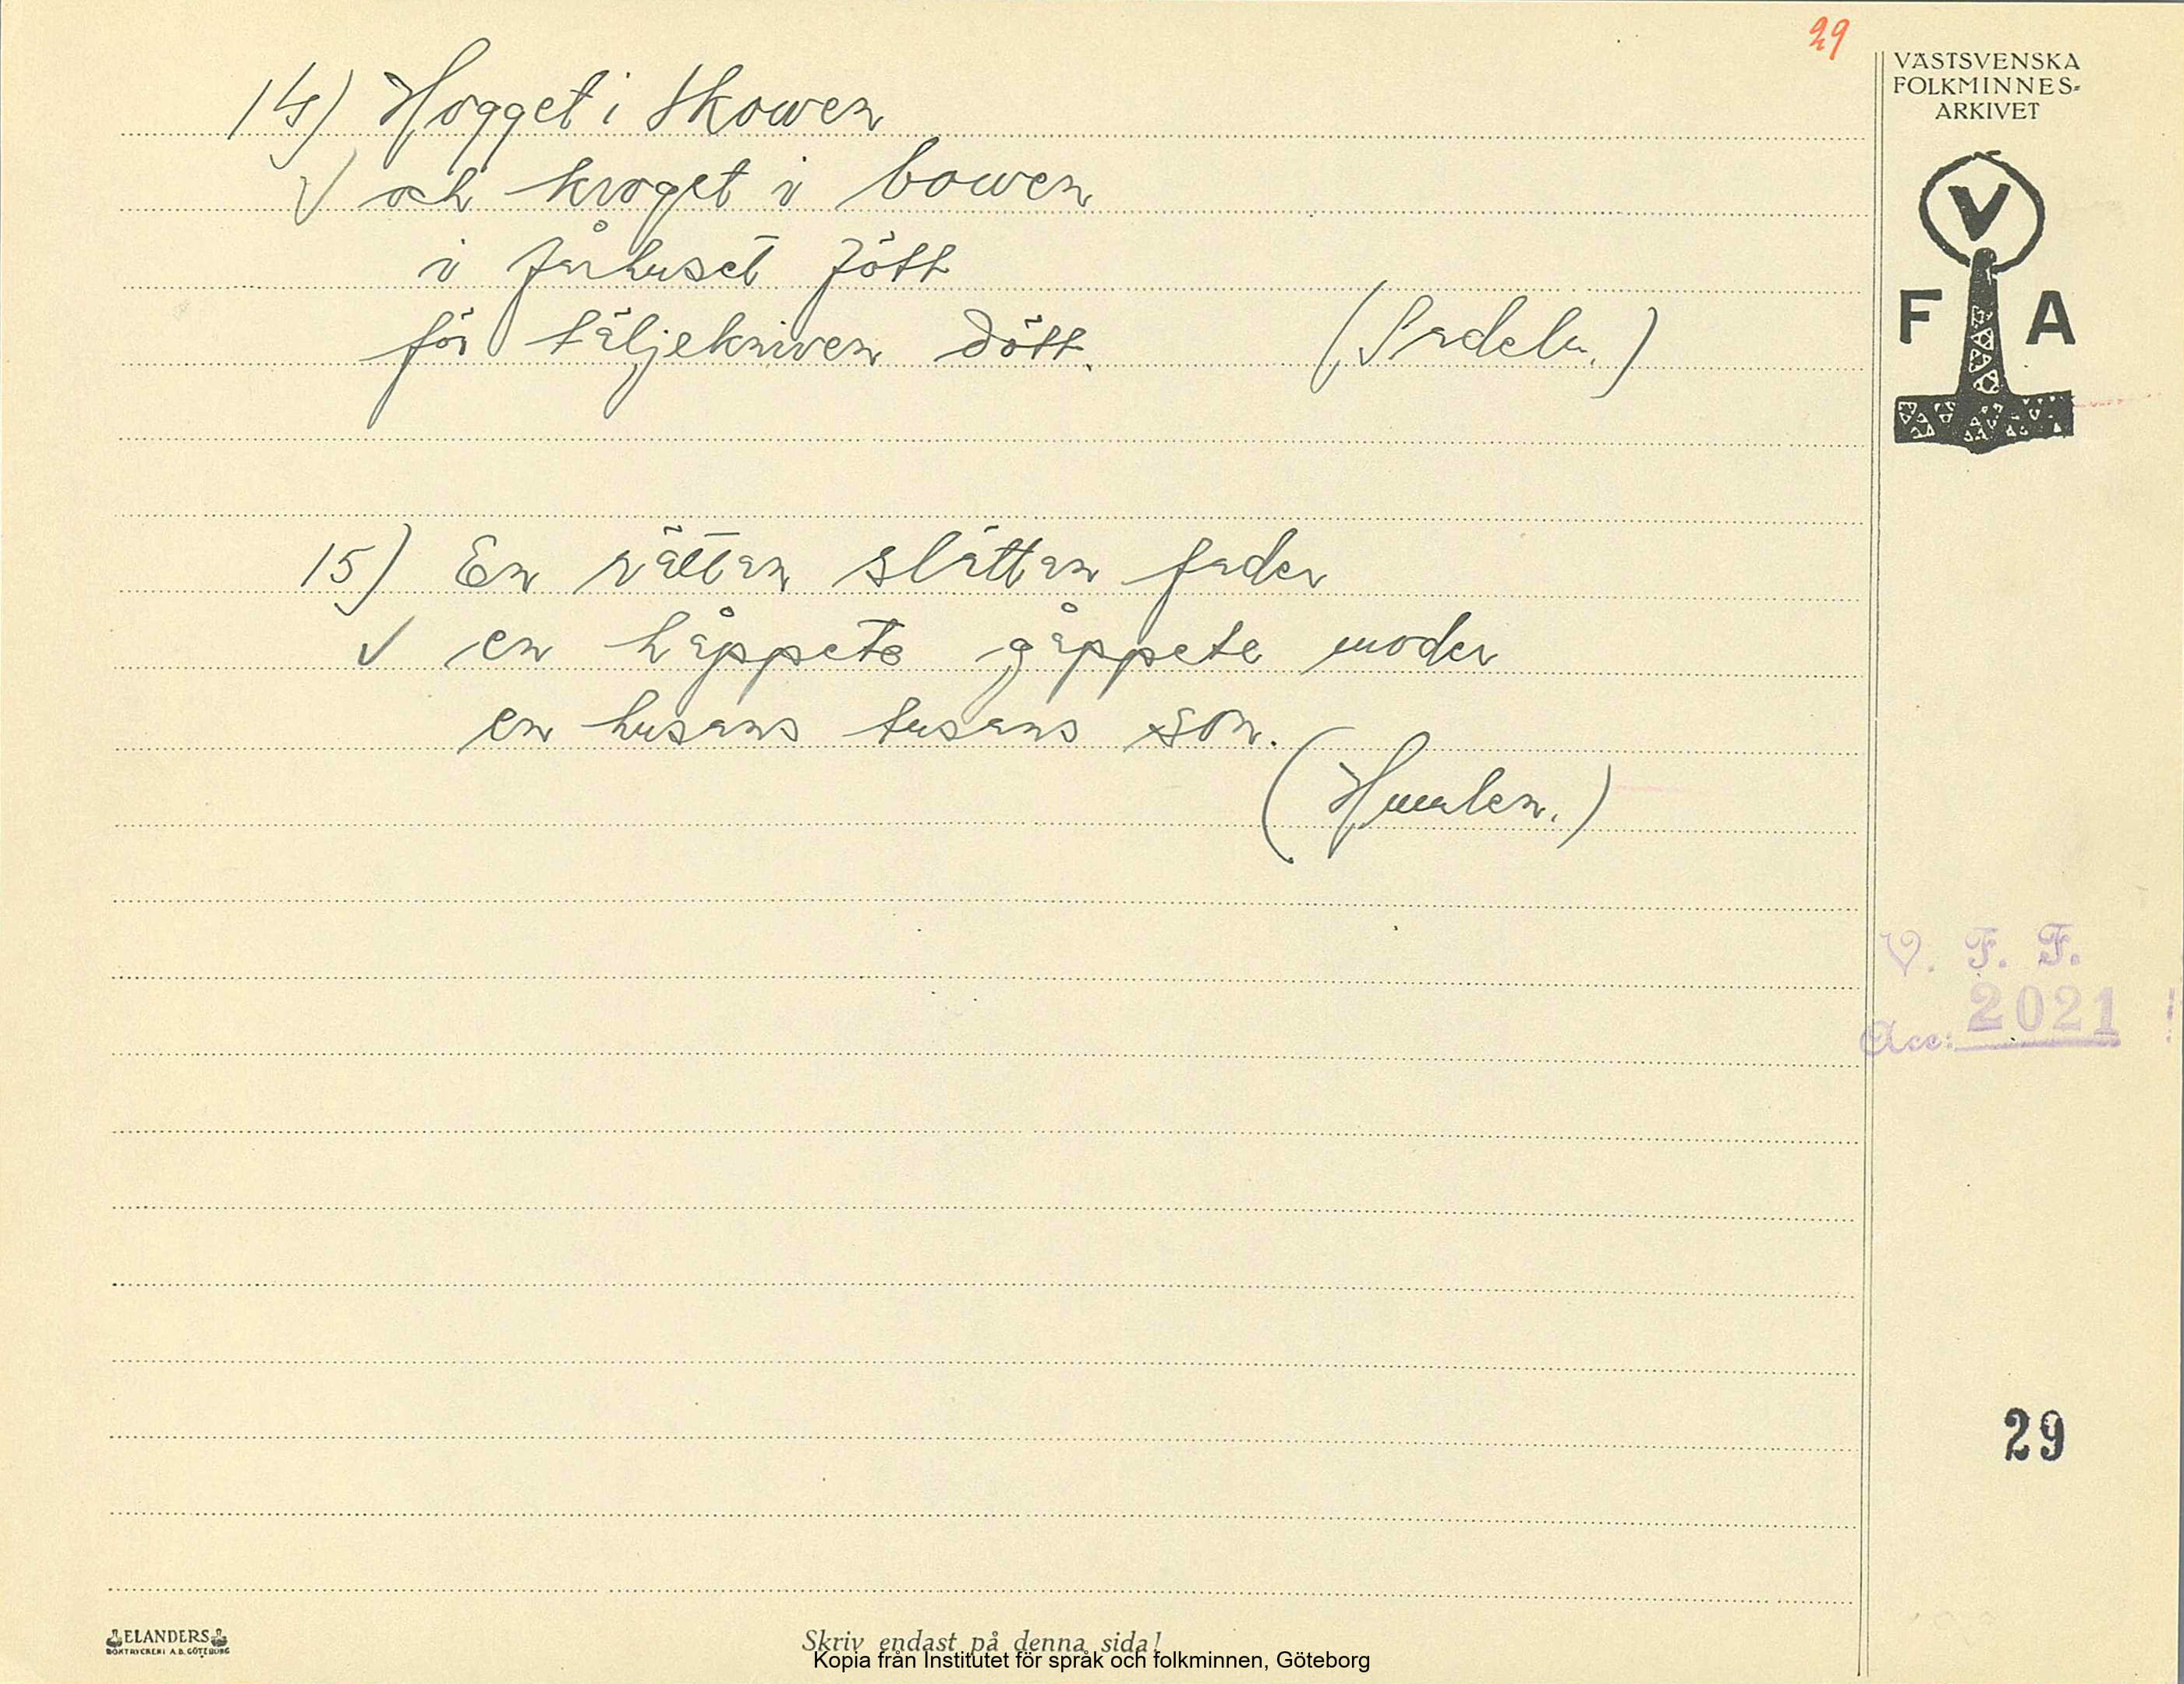 29
VÄSTSVENSKA
FOLKMINNES-
ARKIVET
V
F A
14) Hogget i skowen
✓ och kroget i bowen
i fårhuset fött
för täljekniven dött. (Sadeln.)
15) En rättan slättan fader
✓ en håppete gåppete moder
en husans tusans son.
(Humlen.)
V. F. F.
Acc: 2021
29
ELANDERS
BOKTRYCKERI A.B. GÖTEBORG
Skriv endast på denna sida!
Kopia från Institutet för språk och folkminnen, Göteborg